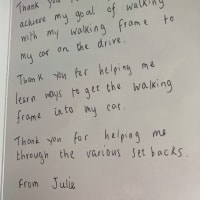 Thank you
achieve my goal of walking
with my walking frame to
my car on the drive.
Thank you for helping me
learn ways to get the walking
frame into my car.
Thank you for helping me
through the various set backs.
from Julie